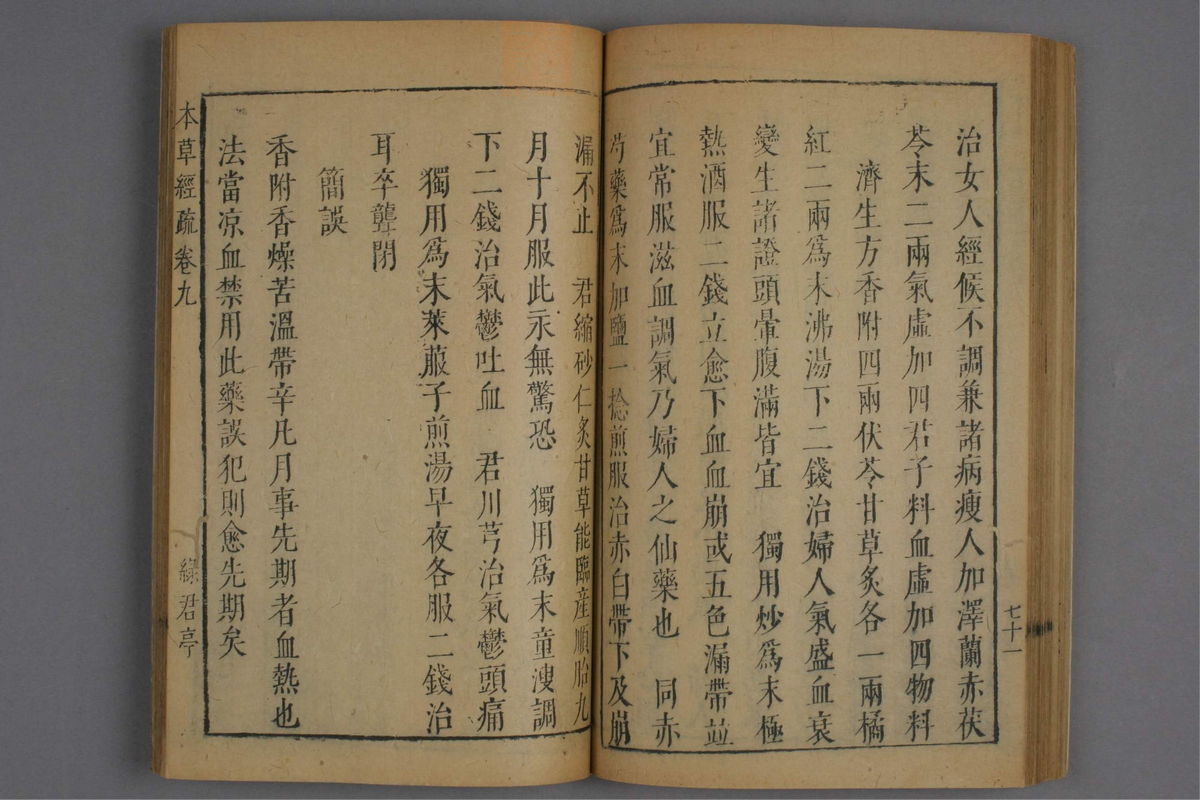 治女人經候不調兼諸病瘦人加澤蘭赤茯
苓末二兩氣虛加四君子料血虛加四物料
濟生方香附四兩伏苓甘草炙各一兩橘
紅二兩爲末沸湯下二錢治婦人氣盛血衰
變生諸證頭暈腹滿皆宜　獨用炒爲末極
熱酒服二錢立愈下血血崩或五色漏帶並
宜常服滋血調氣乃婦人之仙藥也　同赤
芍藥爲末加鹽一捻煎服治赤白帶下及崩
七十一
漏不止　君縮砂仁炙甘草能臨産順胎九
月十月服此永無驚恐　獨用爲末童溲調
下二錢治氣鬱吐血　君川芎治氣鬱頭痛
獨用爲末萊菔子煎湯早夜各服二錢治
耳卒聾閉
簡誤
香附香燥苦溫帶辛凡月事先期者血熱也
法當凉血禁用此藥誤犯則愈先期矣
本草經疏卷九
綠君亭